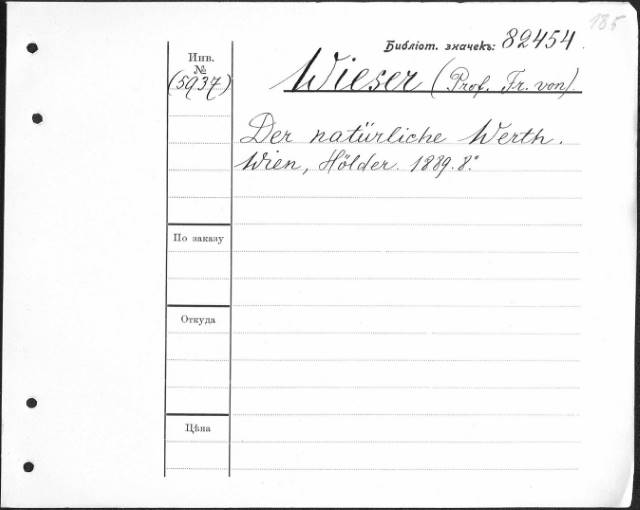 185
Библіот. значекъ: 82454
Инв.
№
(5937)
Wieser (Prof. Fr. von)
Der natürliche Werth.
Wien, Hölder. 1889. 8.°
По заказу
Откуда
Цѣна